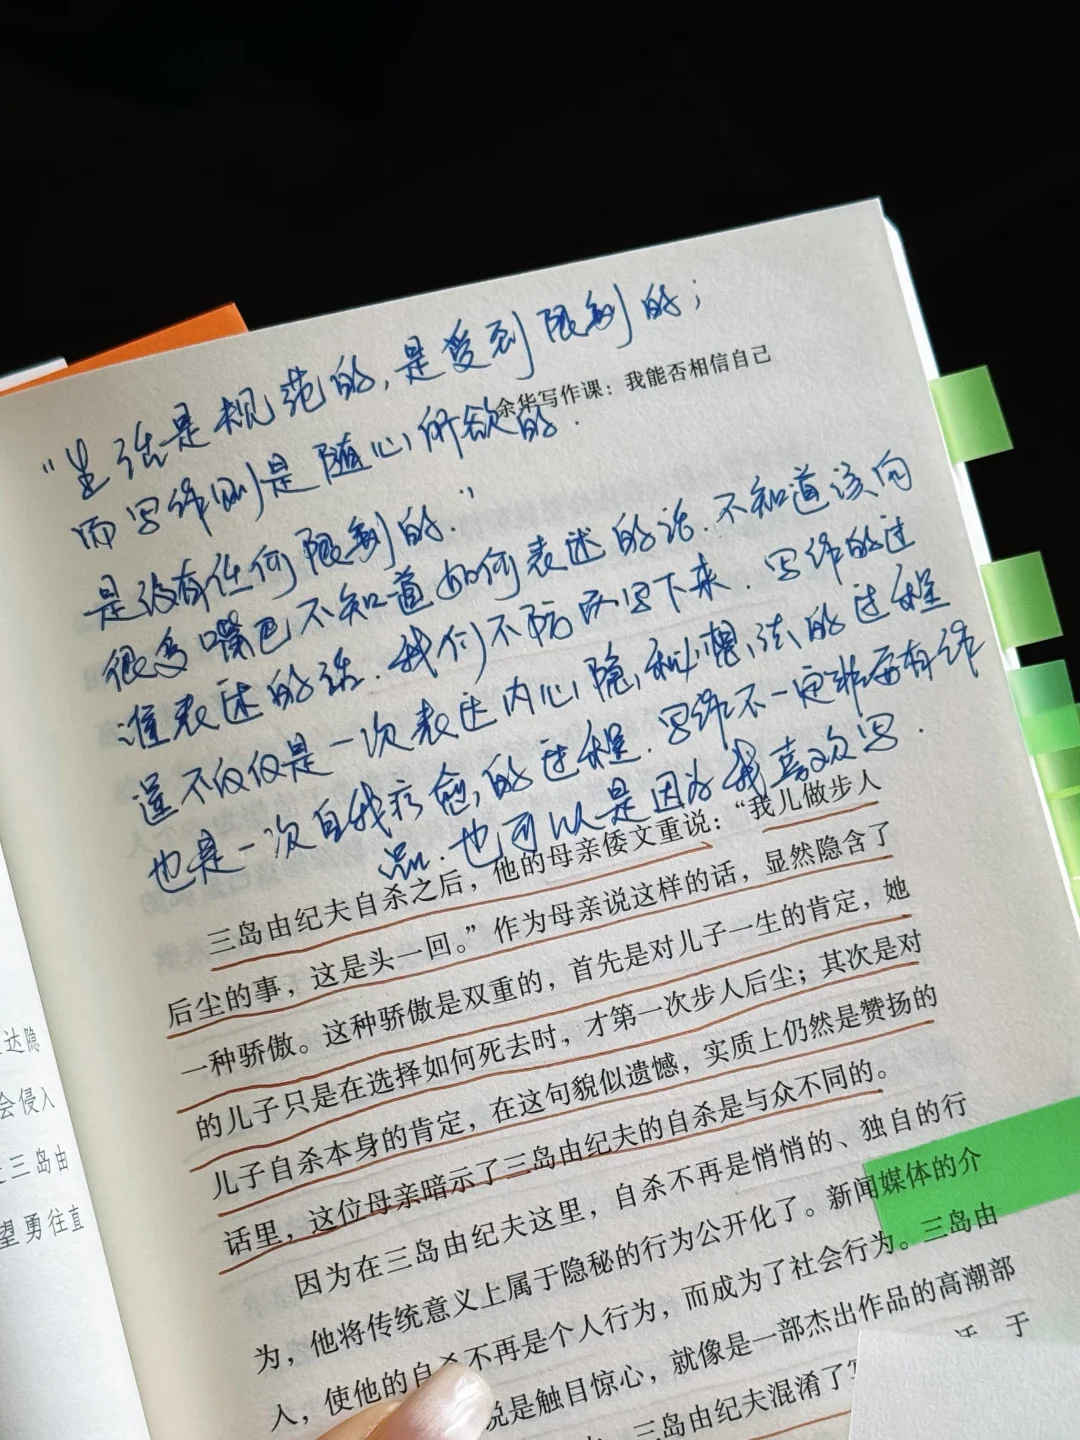 “生活是规范的,是受到限制的;
余华写作课：我能否相信自己
而写作则是随心所欲的.
是没有任何限制的.”
很多嘴巴不知道如何表述的话.不知道该向
谁表述的话.我们不防写下来.写作的过
不仅仅是一次表达内心隐私想法的过程
也是一次自我疗愈的过程.写作不一定非要有作
品.也可以是因为我喜欢写.
三岛由纪夫自杀之后，他的母亲倭文重说：“我儿做步人
后尘的事，这是头一回。”作为母亲说这样的话，显然隐含了
一种骄傲。这种骄傲是双重的，首先是对儿子一生的肯定，她
的儿子只是在选择如何死去时，才第一次步人后尘；其次是对
儿子自杀本身的肯定，在这句貌似遗憾，实质上仍然是赞扬的
话里，这位母亲暗示了三岛由纪夫的自杀是与众不同的。
因为在三岛由纪夫这里，自杀不再是悄悄的、独自的行
为，他将传统意义上属于隐秘的行为公开化了。新闻媒体的介
人，使他的自杀不再是个人行为，而成为了社会行为。三岛由
说是触目惊心，就像是一部杰出作品的高潮部
三岛由纪夫混淆了
于
达隐
会侵入
三岛由
望勇往直